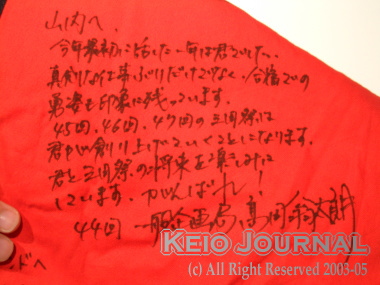 山内へ、
今年最初に話した一年は君でした。
真剣な仕事ぶりだけでなく、合宿での
勇姿も印象に残っています。
45回、46回、47回の三田祭は
君が創り上げていくことになります。
君と三田祭の将来を楽しみに
しています。がんばれ!
44回 一般企画局 高岡
ンドへ
KEIO JOURNAL
(c) All Right Reserved 2003-05